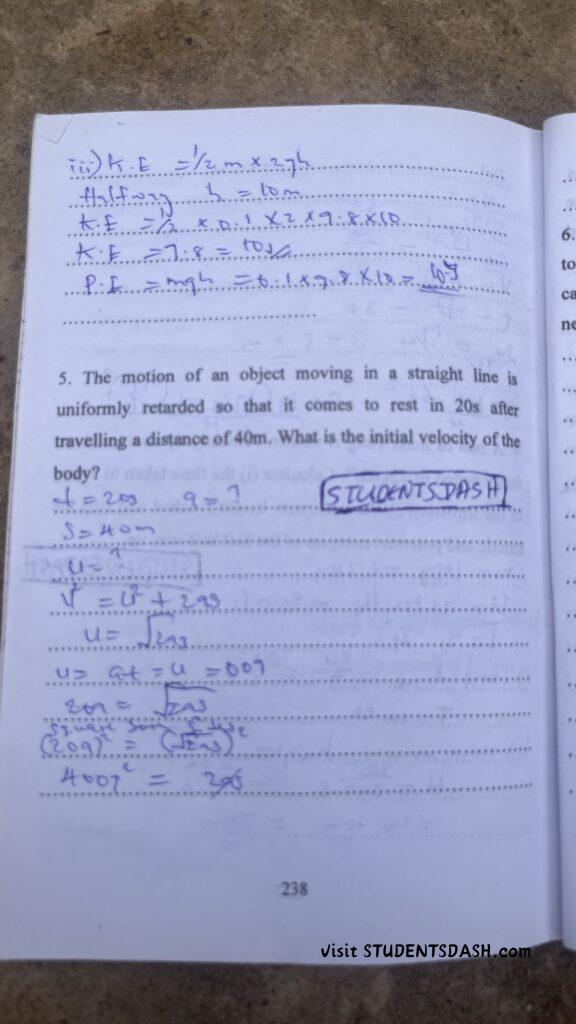 iii) K.E = 1/2 m x 2gh
Halfway h = 10m
K.E = 1/2 x 0.1 x 2 x 9.8 x 10
K.E = 9.8 = 10J
P.E = mgh = 0.1 x 9.8 x 10 = 10J
5. The motion of an object moving in a straight line is
uniformly retarded so that it comes to rest in 20s after
travelling a distance of 40m. What is the initial velocity of the
body?
t = 20s a = ?
STUDENTSDASH
S = 40m
u = ?
V² = U² + 2as
u = √2as
u = at = u =
20a = √2as
Square both
(20a)² = (√2as)²
400a² = 2as
238
6.
to
ca
ne
visit STUDENTSDASH.com